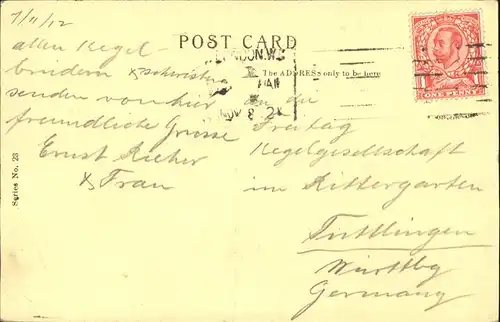 7/11/12
POST CARD
The ADDRESS only to be here
LONDON.W.
NOV 8
ONE PENNY
allen Kegel-
brüdern & schwestern
senden von hier
freundliche Grüsse
Ernst Richer
& Frau
An die
Freitag
Kegelgesellschaft
im Rittergarten
Tuttlingen
Württbg
Germany
Series No. 23